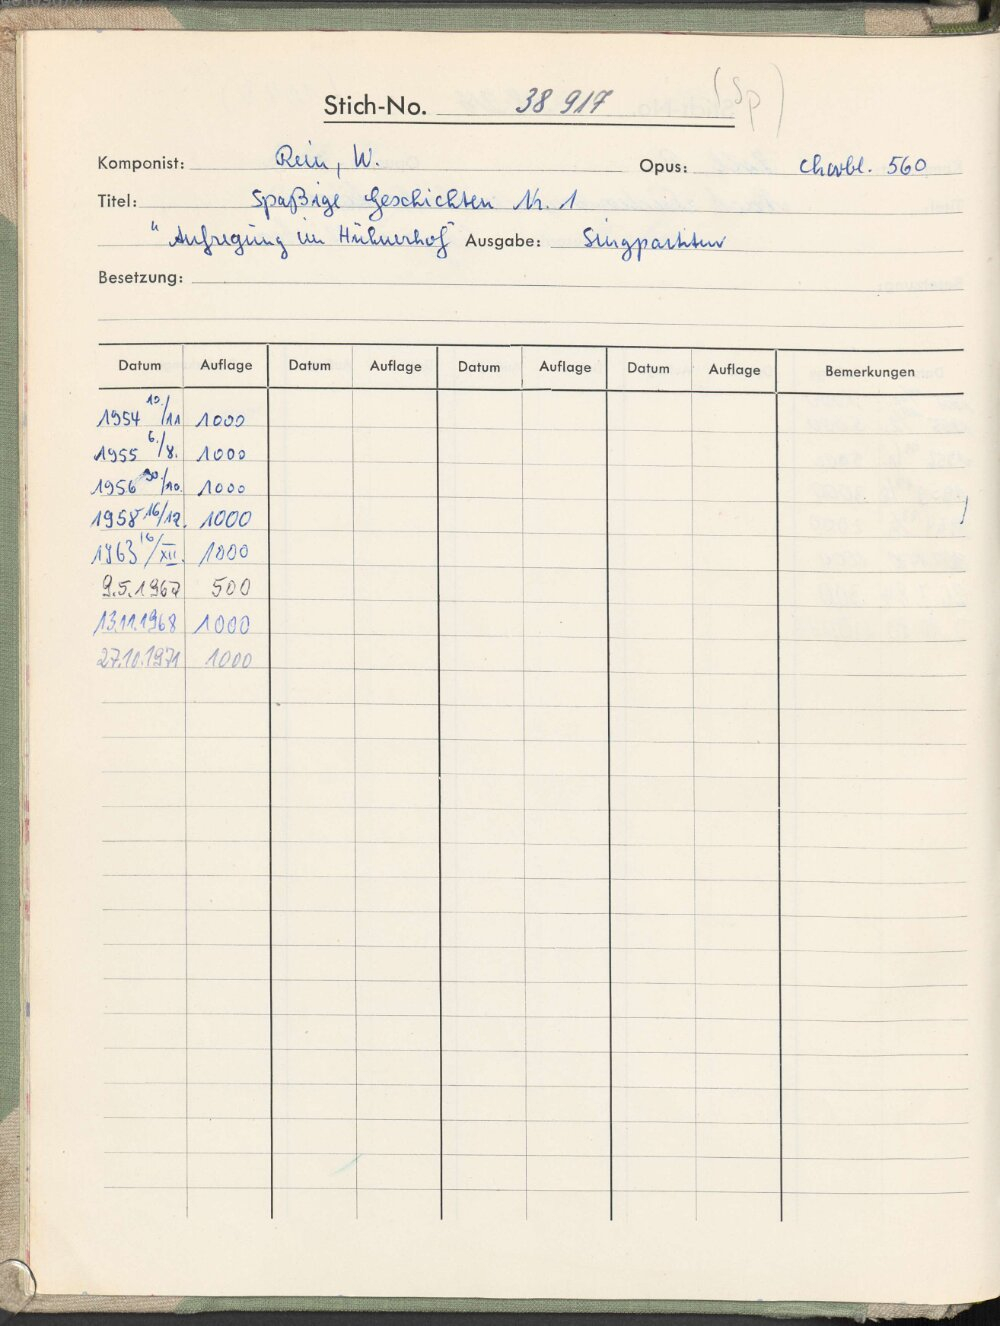 Stich-No. 38 917 (Sp)
Komponist: Rein, W. Opus: Chorbl. 560
Titel: Spaßige Geschichten Nr. 1
"Aufregung im Hühnerhof" Ausgabe: Singpartitur
Besetzung:
Datum Auflage Datum Auflage Datum Auflage Datum Auflage Bemerkungen
1954 10./11 1000
1955 6./8. 1000
1956 30/10. 1000
1958 16/12. 1000
1963 16/XII. 1000
9.5.1967 500
13.11.1968 1000
27.10.1971 1000